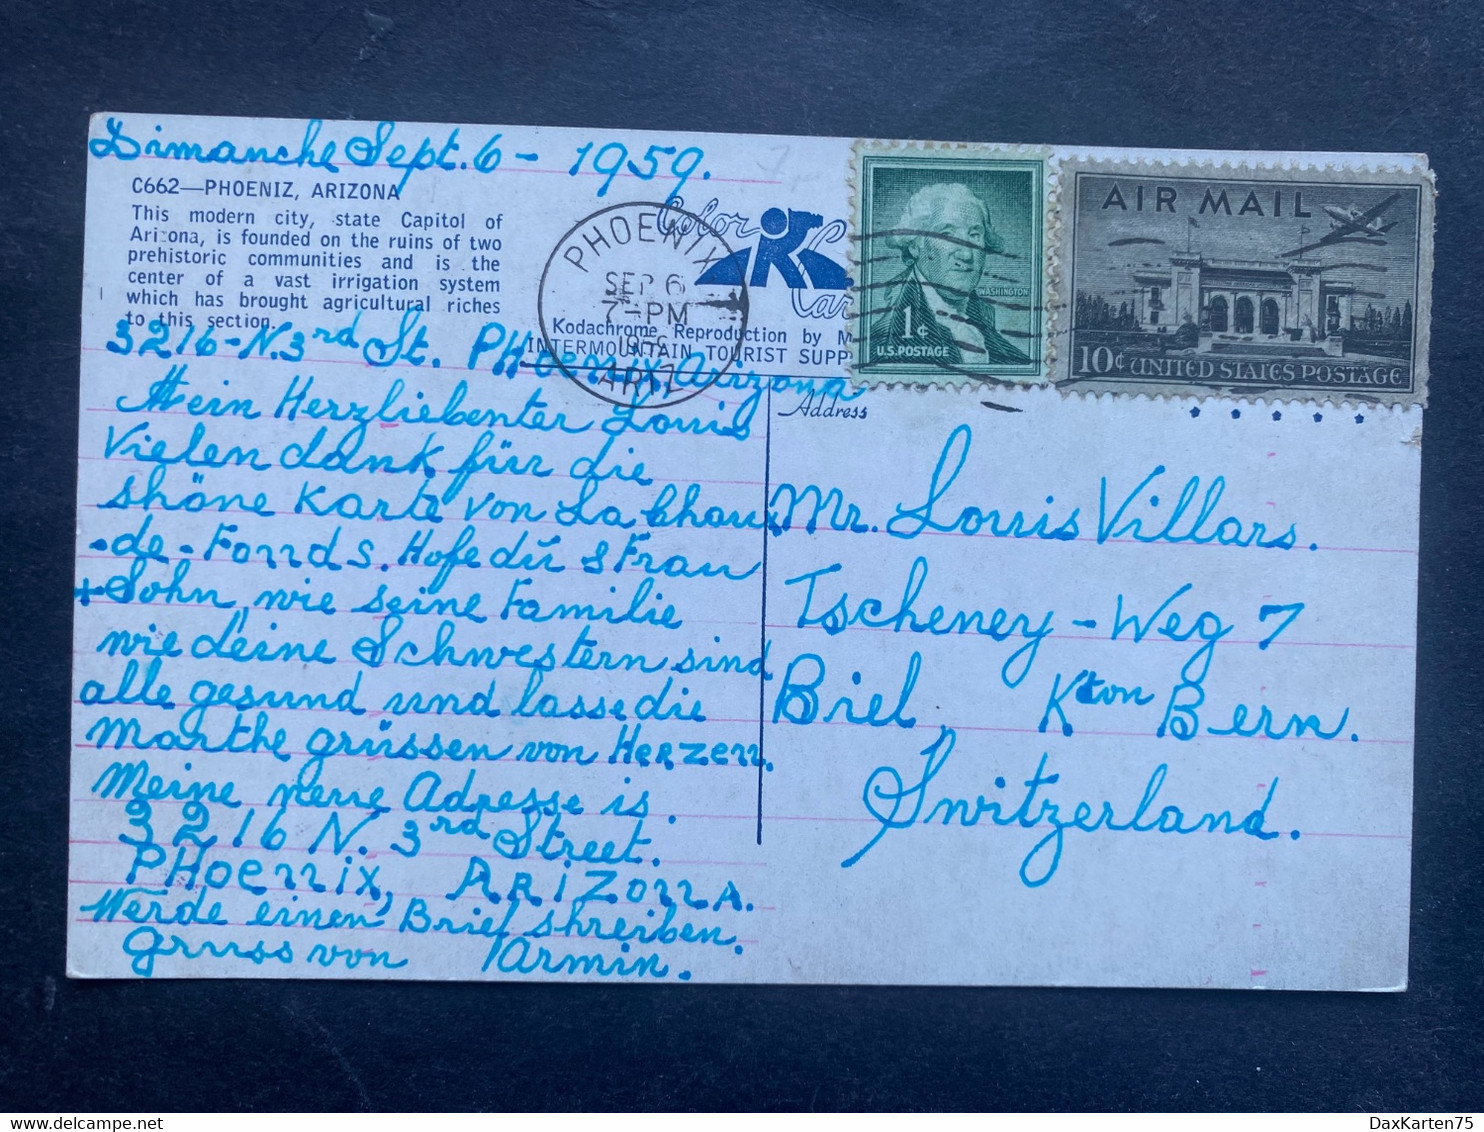 Dimanche Sept. 6 - 1959.
C662—PHOENIZ, ARIZONA
This modern city, state Capitol of
Arizona, is founded on the ruins of two
prehistoric communities and is the
center of a vast irrigation system
which has brought agricultural riches
to this section.
Color
Kodachrome Reproduction by M
INTERMOUNTAIN TOURIST SUPP
PHOENIX
SEP 6
7-PM
ARIZ
1¢
WASHINGTON
U.S. POSTAGE
AIR MAIL
10¢ UNITED STATES POSTAGE
3216-N. 3rd St. PHoenix, Arizona
Mein Herzliebenter Louis
Vielen dank für die
shöne Karte von La Chau
-de-Fonds. Hofe dü s Frau
+ Sohn, wie seine Familie
wie deine Schwestern sind
alle gesund und lasse die
Marthe grüssen von Herzen.
Meine neue Adresse is.
3216 N. 3rd Street.
PHoenix, ARiZonA.
Werde einen Brief shreiben.
Gruss von Armin.
Address
Mr. Louis Villars.
Tscheney-Weg 7
Biel, Kton Bern.
Switzerland.
DaxKarten75